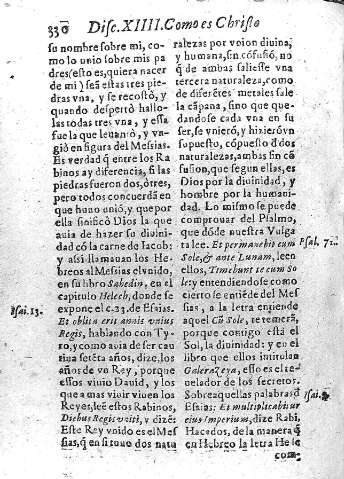 330 Disc. XIIII. Como es Christo
su nombre sobre mi, co-
mo lo unio sobre mis pa
dres (esto es, quiera nacer
de mi) seã estas tres pie-
dras vna, y se recostó, y
quando despertó hallo-
las todas tres vna, y essa
fue la que leuantó, y vn-
gió en figura del Messias.
Es verdad q̃ entre los Ra
binos ay diferencia, si las
piedras fueron dos, ò tres,
pero todos concuerdã en
que huuo vnió, y que por
ella sinificò Dios la que
auia de hazer su diuini-
dad cõ la carne de Iacob:
y assi llamauan los He-
breos al Messias el vnido,
en su libro Sahedin, en el
capitulo Helech, donde se
expone el c. 23. de Esaias.
Isai. 23.
Et oblita erit annis vnius
Regis, hablando con Ty-
ro, y como auia de ser cau
tiua setẽta años, dize, los
años de vn Rey, porque
essos viuio Dauid, y los
que a mas viuir viuen los
Reyes, leẽ estos Rabinos,
Diebus Regis vniti, y dizẽ:
Este Rey vnido es el Mes
sias, q̃ en si tuuo dos natu
ralezas por vnion diuina,
y humana, sin cõfusiõ, no
q̃ de ambas saliesse vna
tercera naturaleza, como
de diferẽtes metales sale
la cãpana, sino que que-
dandose cada vna en su
ser, se vnierõ, y hizierõ vn
supuesto, cõpuesto d̃ dos
naturalezas, ambas sin cõ
fusion, que segun ellas, es
Dios por la diuinidad, y
hombre por la humani-
dad. Lo mismo se puede
comprouar del Psalmo,
que dõde nuestra Vulga
ta lee. Et permanebit cum
Psal. 71.
Sole, & ante Lunam, leen
ellos, Timebunt te cum So
le, y entendiendose como
cierto se entiẽde del Mes
sias, a la letra entiende
aquel Cũ Sole, te temerã,
porque contigo està el
Sol, la diuinidad: y en el
libro que ellos intitulan
Galerazeya, esso es el re-
uelador de los secretos.
Sobre aquellas palabras d̃
Isai. 9.
Esaias: Et multiplicabitur
eius imperium, dize Rabi,
Hacados, de la manera q̃
en Hebreo la letra He se
com-